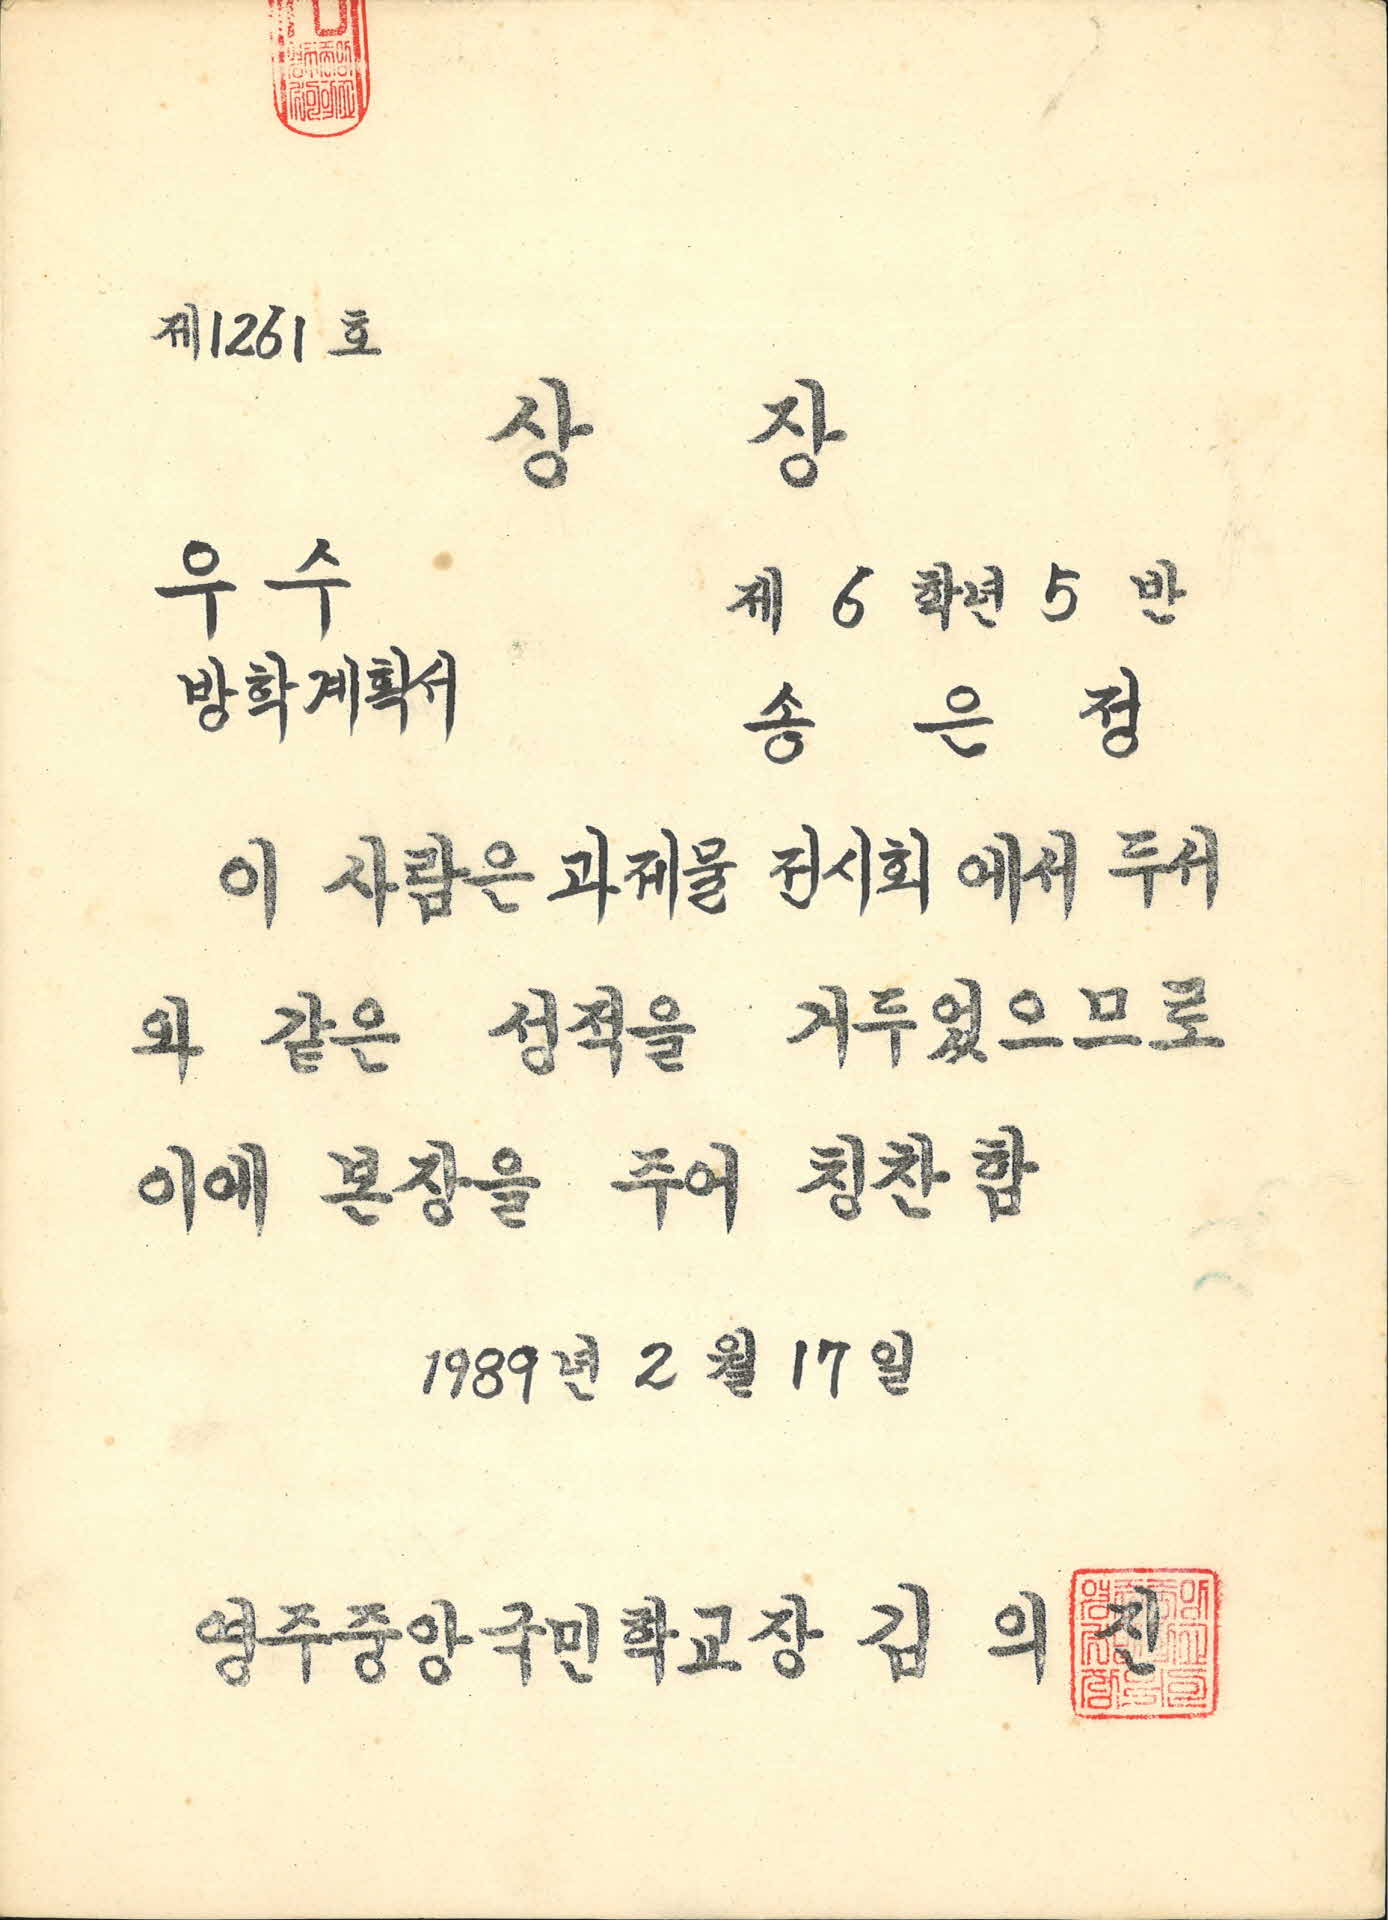 제1261호
상 장
우수
방학계획서
제 6 학년 5 반
송 은 정
이 사람은 과제물 전시회에서 두서
와 같은 성적을 거두었으므로
이에 본장을 주어 칭찬함
1989년 2월 17일
영주중앙국민학교장 김 의 진